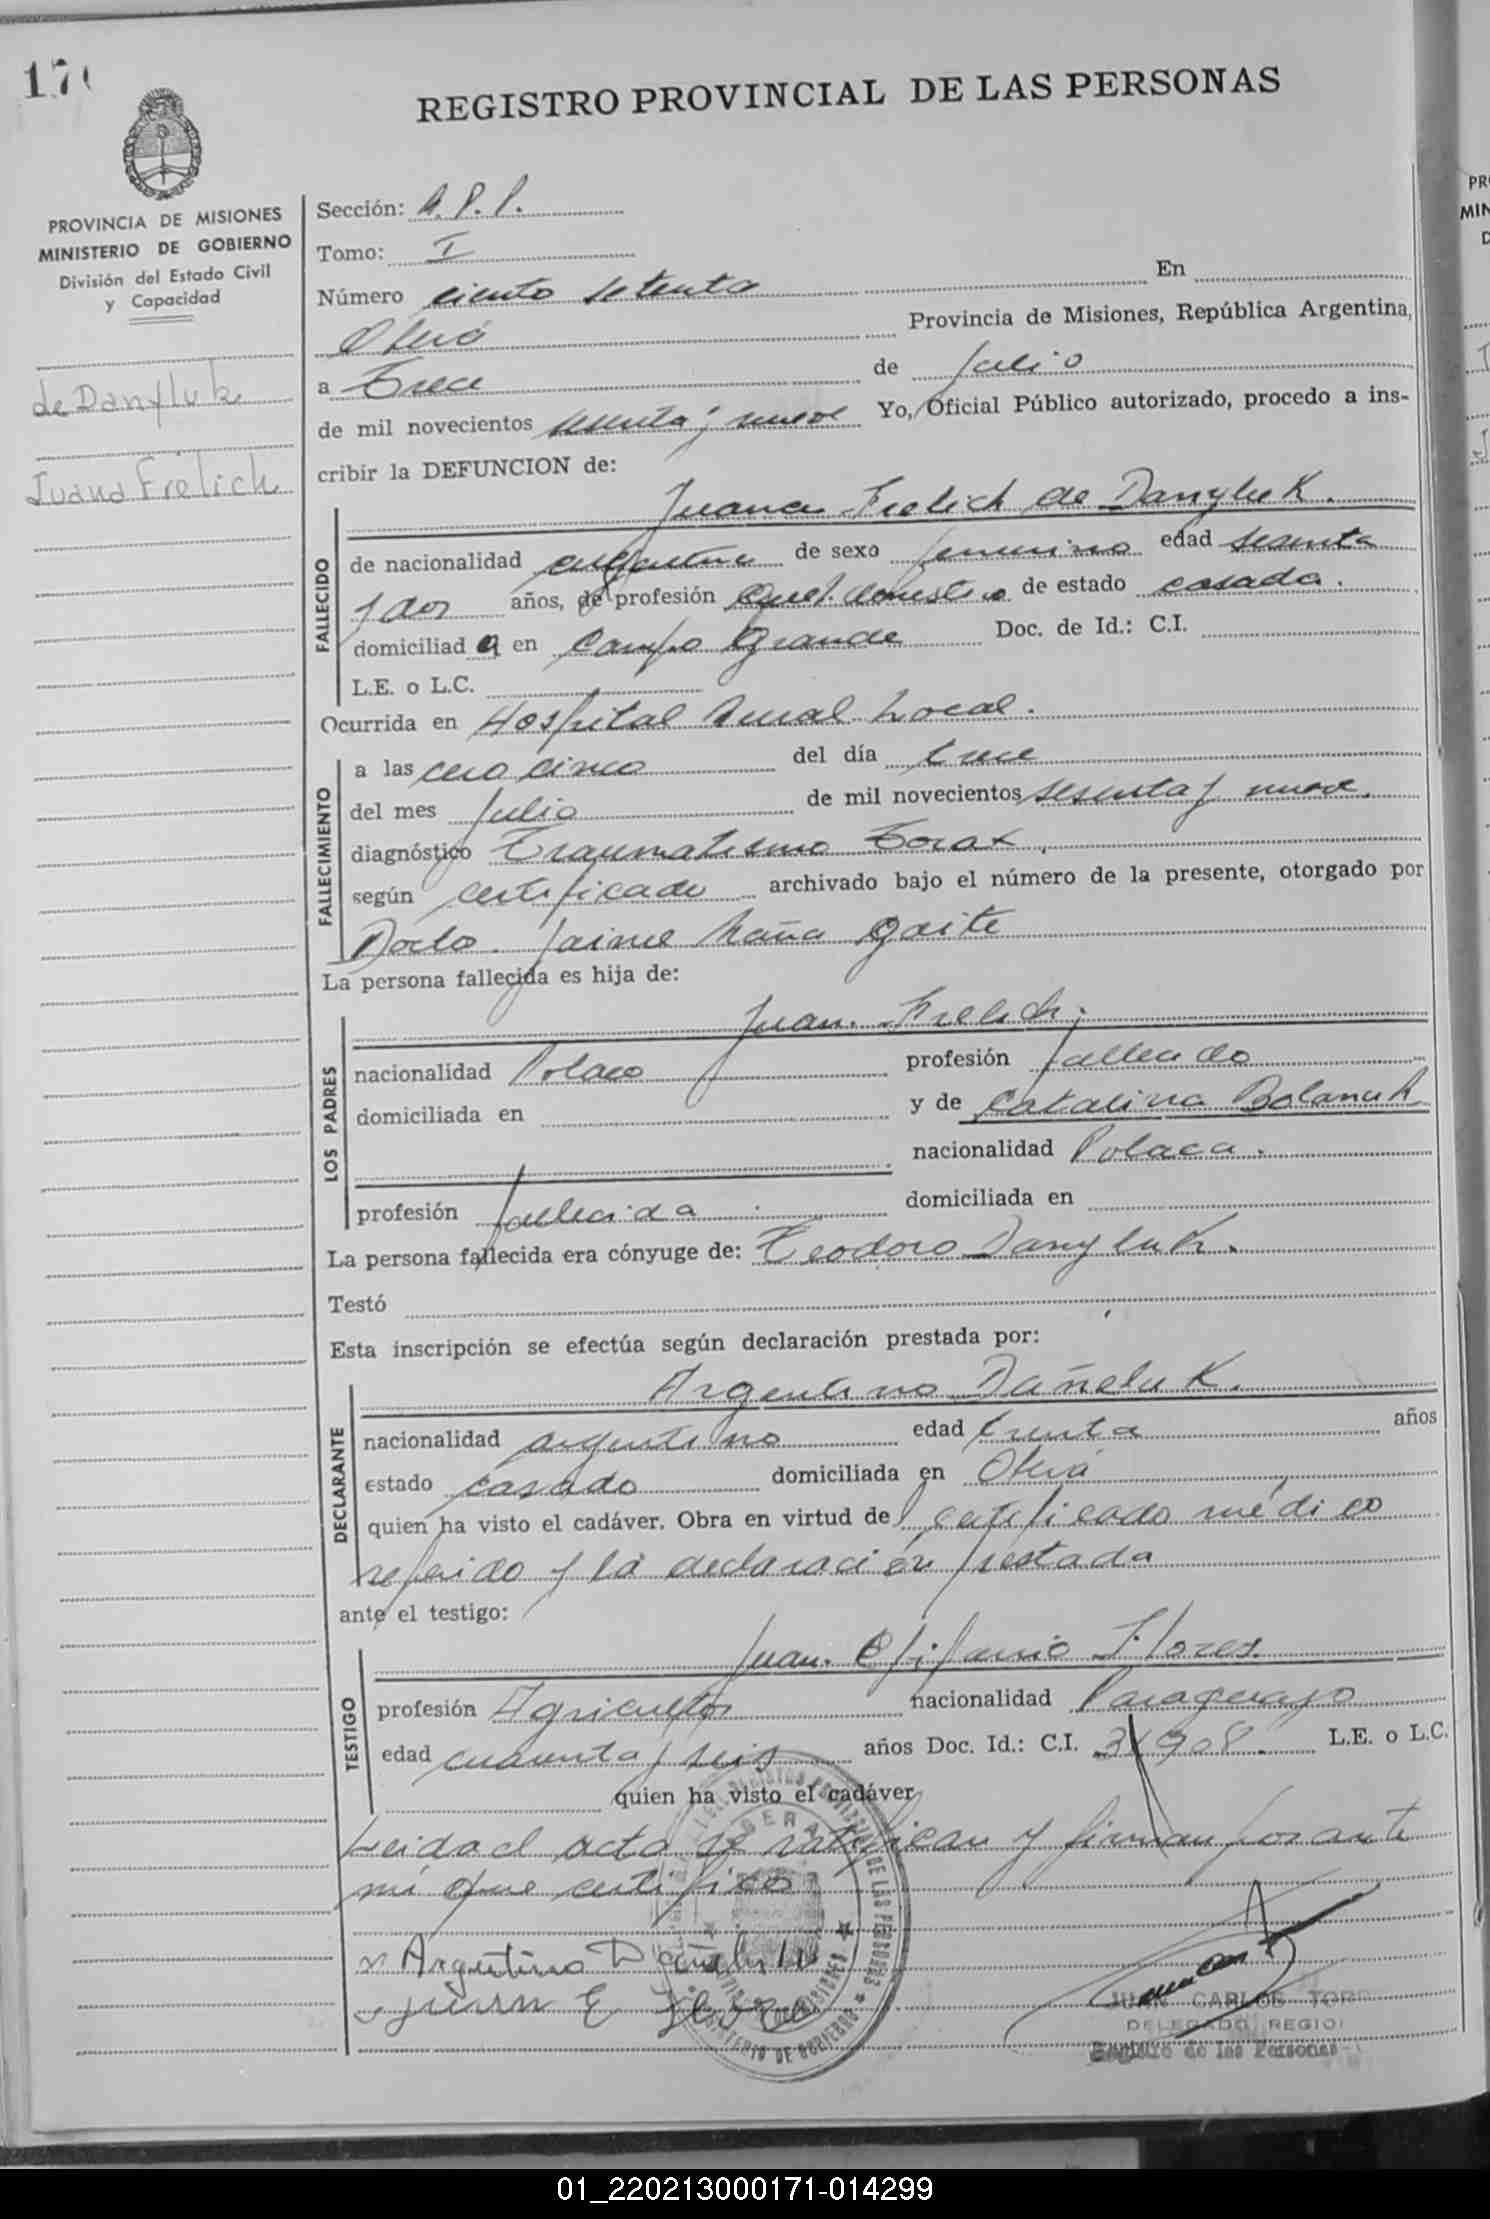 170
REGISTRO PROVINCIAL DE LAS PERSONAS
PROVINCIA DE MISIONES
MINISTERIO DE GOBIERNO
División del Estado Civil
y Capacidad
de Danyluk
Juana Frelich
Sección:
Tomo: I
Número ciento setenta En
Oberá Provincia de Misiones, República Argentina,
a Trece de Julio
de mil novecientos sesenta y nueve Yo, Oficial Público autorizado, procedo a ins-
cribir la DEFUNCION de:
Juana Frelich de Danyluk.
FALLECIDO
de nacionalidad de sexo femenino edad sesenta
y dos años, de profesión de estado casada.
domiciliada en Campo Grande Doc. de Id.: C.I.
L.E. o L.C.
Ocurrida en Hospital Rural Local.
FALLECIMIENTO
a las cero cinco del día trece
del mes Julio de mil novecientos sesenta y nueve.
diagnóstico Traumatismo Torax.
según certificado archivado bajo el número de la presente, otorgado por
Doctor Jaime Gaite
La persona fallecida es hija de:
LOS PADRES
Juan Frelich;
nacionalidad Polaco profesión fallecido
domiciliada en y de Catalina
nacionalidad Polaca.
profesión fallecida domiciliada en
La persona fallecida era cónyuge de: Teodoro Danyluk.
Testó
Esta inscripción se efectúa según declaración prestada por:
DECLARANTE
Argentino Dañeluk.
nacionalidad argentino edad treinta años
estado casado domiciliada en Oberá
quien ha visto el cadáver. Obra en virtud del certificado médico
referido y la declaración prestada
ante el testigo:
TESTIGO
Juan Epifanio Flores.
profesión Agricultor nacionalidad Paraguayo
edad cuarenta y seis años Doc. Id.: C.I. L.E. o L.C.
quien ha visto el cadáver
Leida el acta se ratifican y firman por ante
mí que certifico
Argentino Dañeluk
Juan E Flores
JUAN CARLOS TORR
DELEGADO REGIO
Registro de las Personas
01_220213000171-014299